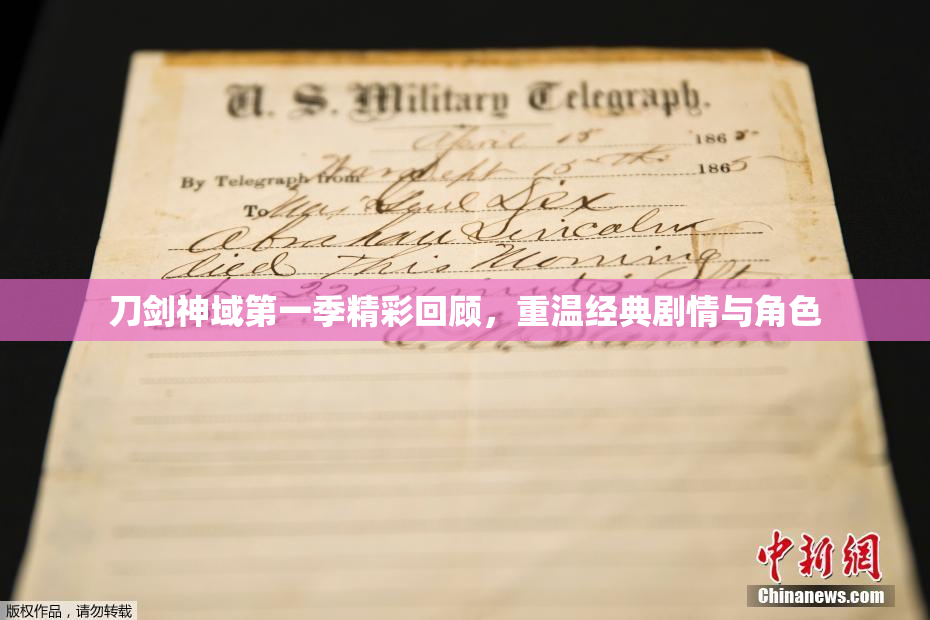 U. S. Military Telegraph.
April 15 1865
By Telegraph from War Dept 15th 1865
To Maj Genl Dix
Abraham Lincoln
died This Morning
22 minutes after
刀剑神域第一季精彩回顾，重温经典剧情与角色
E. M. Stanton
中新网
Chinanews.com
版权作品，请勿转载